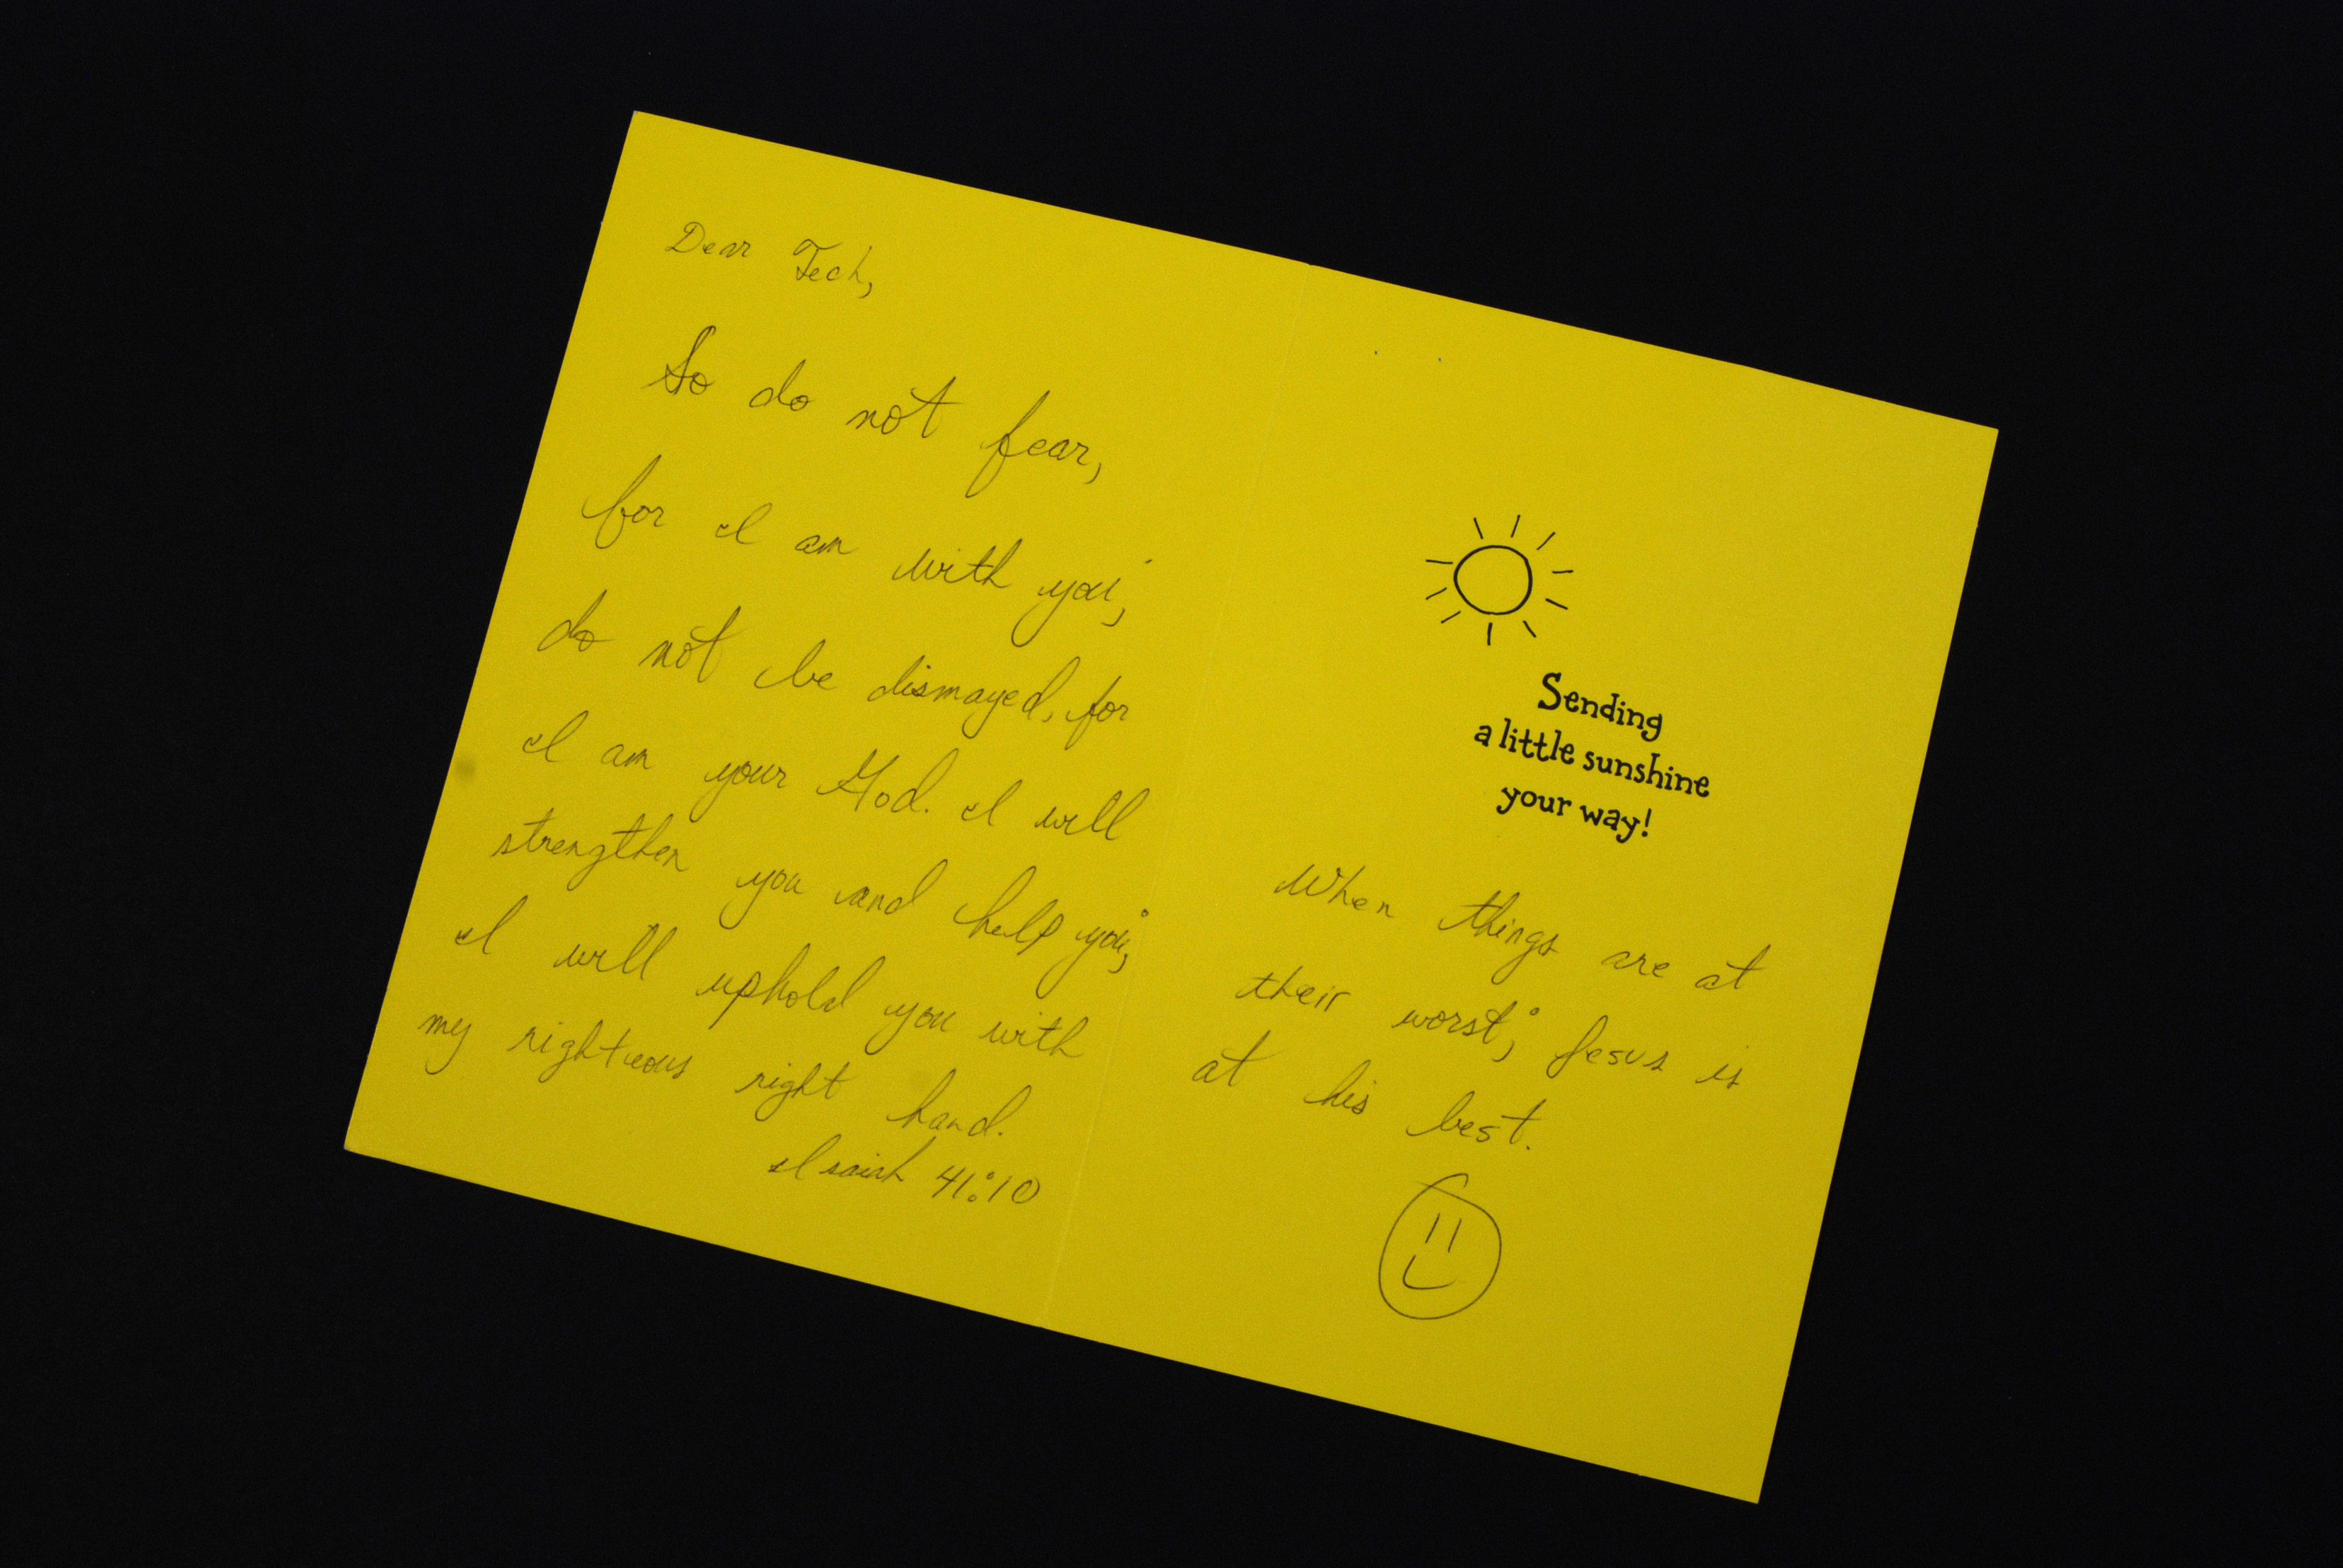 Dear Tech,
So do not fear,
for I am with you;
do not be dismayed, for
I am your God. I will
strengthen you and help you;
I will uphold you with
my righteous right hand.
Isaiah 41:10
Sending
a little sunshine
your way!
When things are at
their worst; Jesus is
at his best.